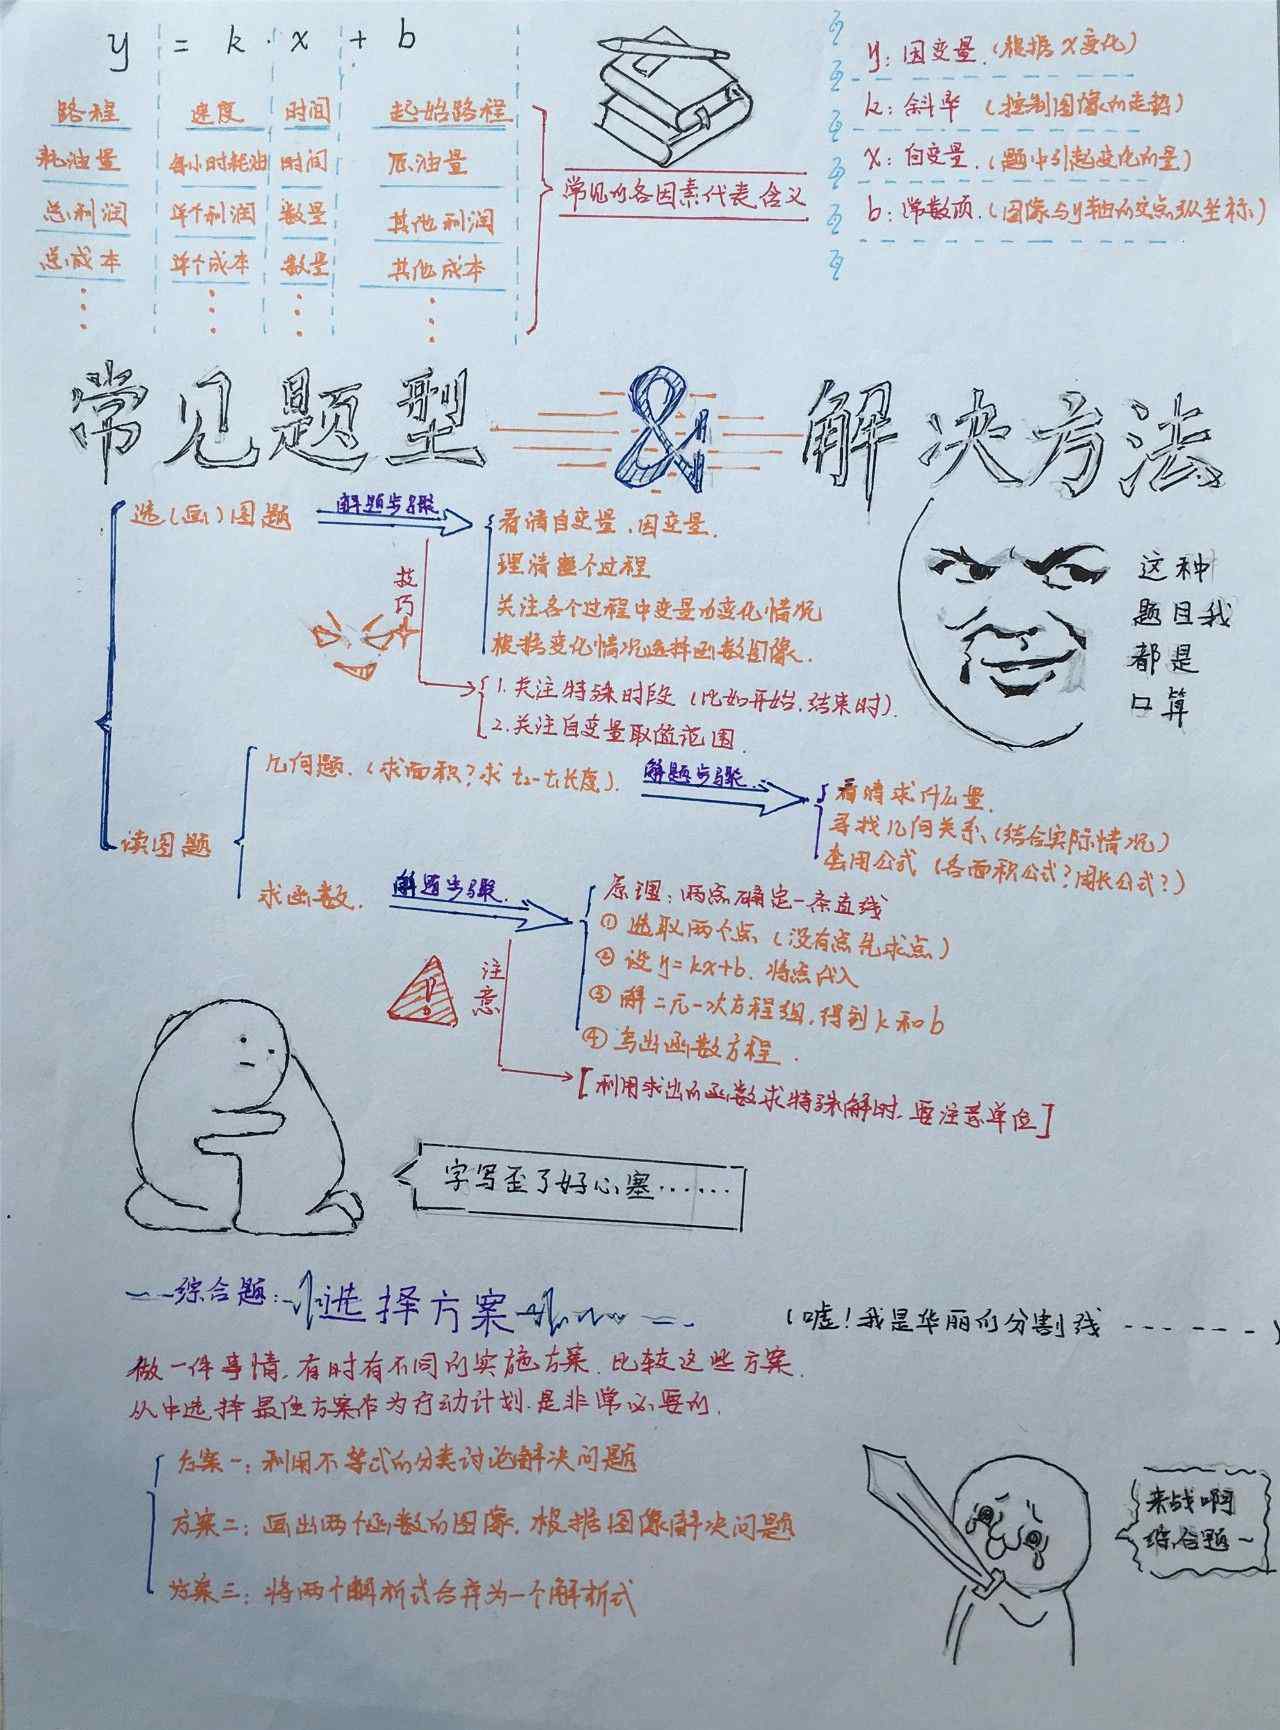 y = k · x + b
路程 速度 时间 起始路程
耗油量 每小时耗油 时间 原油量
总利润 单个利润 数量 其他利润
总成本 单个成本 数量 其他成本
常见的各因素代表含义
y: 因变量.(根据x变化)
k: 斜率 (控制图像的走势)
x: 自变量.(题中引起变化的量)
b: 常数项.(图像与y轴的交点纵坐标)
常见题型 & 解决方法
选(画)图题
解题步骤
看清自变量.因变量.
理清整个过程
关注各个过程中变量的变化情况
根据变化情况选择函数图像.
技巧
1.关注特殊时段(比如开始.结束时).
2.关注自变量取值范围.
这种
题目我
都是
口算
读图题
几何题.(求面积?求t₂-t₁长度).
解题步骤
看清求什么量.
寻找几何关系.(结合实际情况)
套用公式(各面积公式?周长公式?)
求函数.
解题步骤.
原理:两点确定一条直线
①选取两个点(没有点先求点)
②设y=kx+b.将点代入
③解二元一次方程组,得到k和b
④写出函数方程.
!
注意
[利用求出的函数求特殊解时.要注意单位]
字写歪了好心塞......
综合题: 选择方案
(嘘!我是华丽的分割线------)
做一件事情,有时有不同的实施方案.比较这些方案.
从中选择最佳方案作为行动计划.是非常必要的.
方案一:利用不等式的分类讨论解决问题
方案二:画出两个函数的图像.根据图像解决问题
方案三:将两个解析式合并为一个解析式
来战啊
综合题~